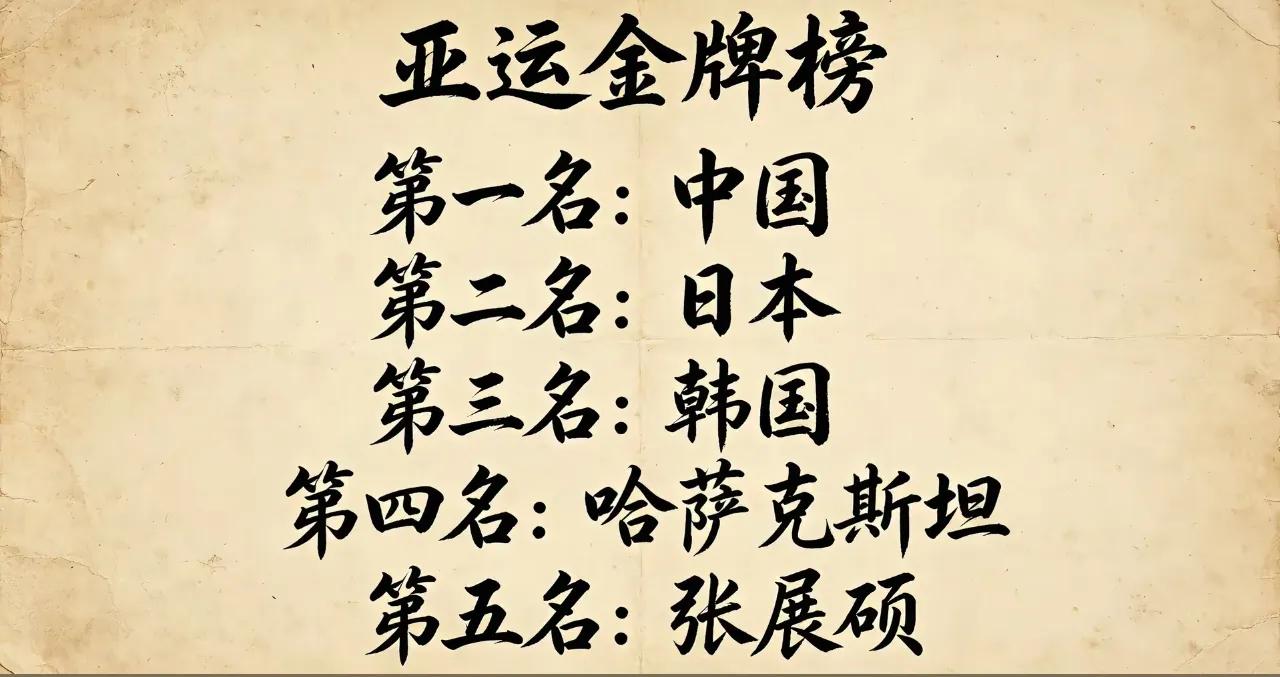 亚运金牌榜
第一名：中国
第二名：日本
第三名：韩国
第四名：哈萨克斯坦
第五名：张展硕